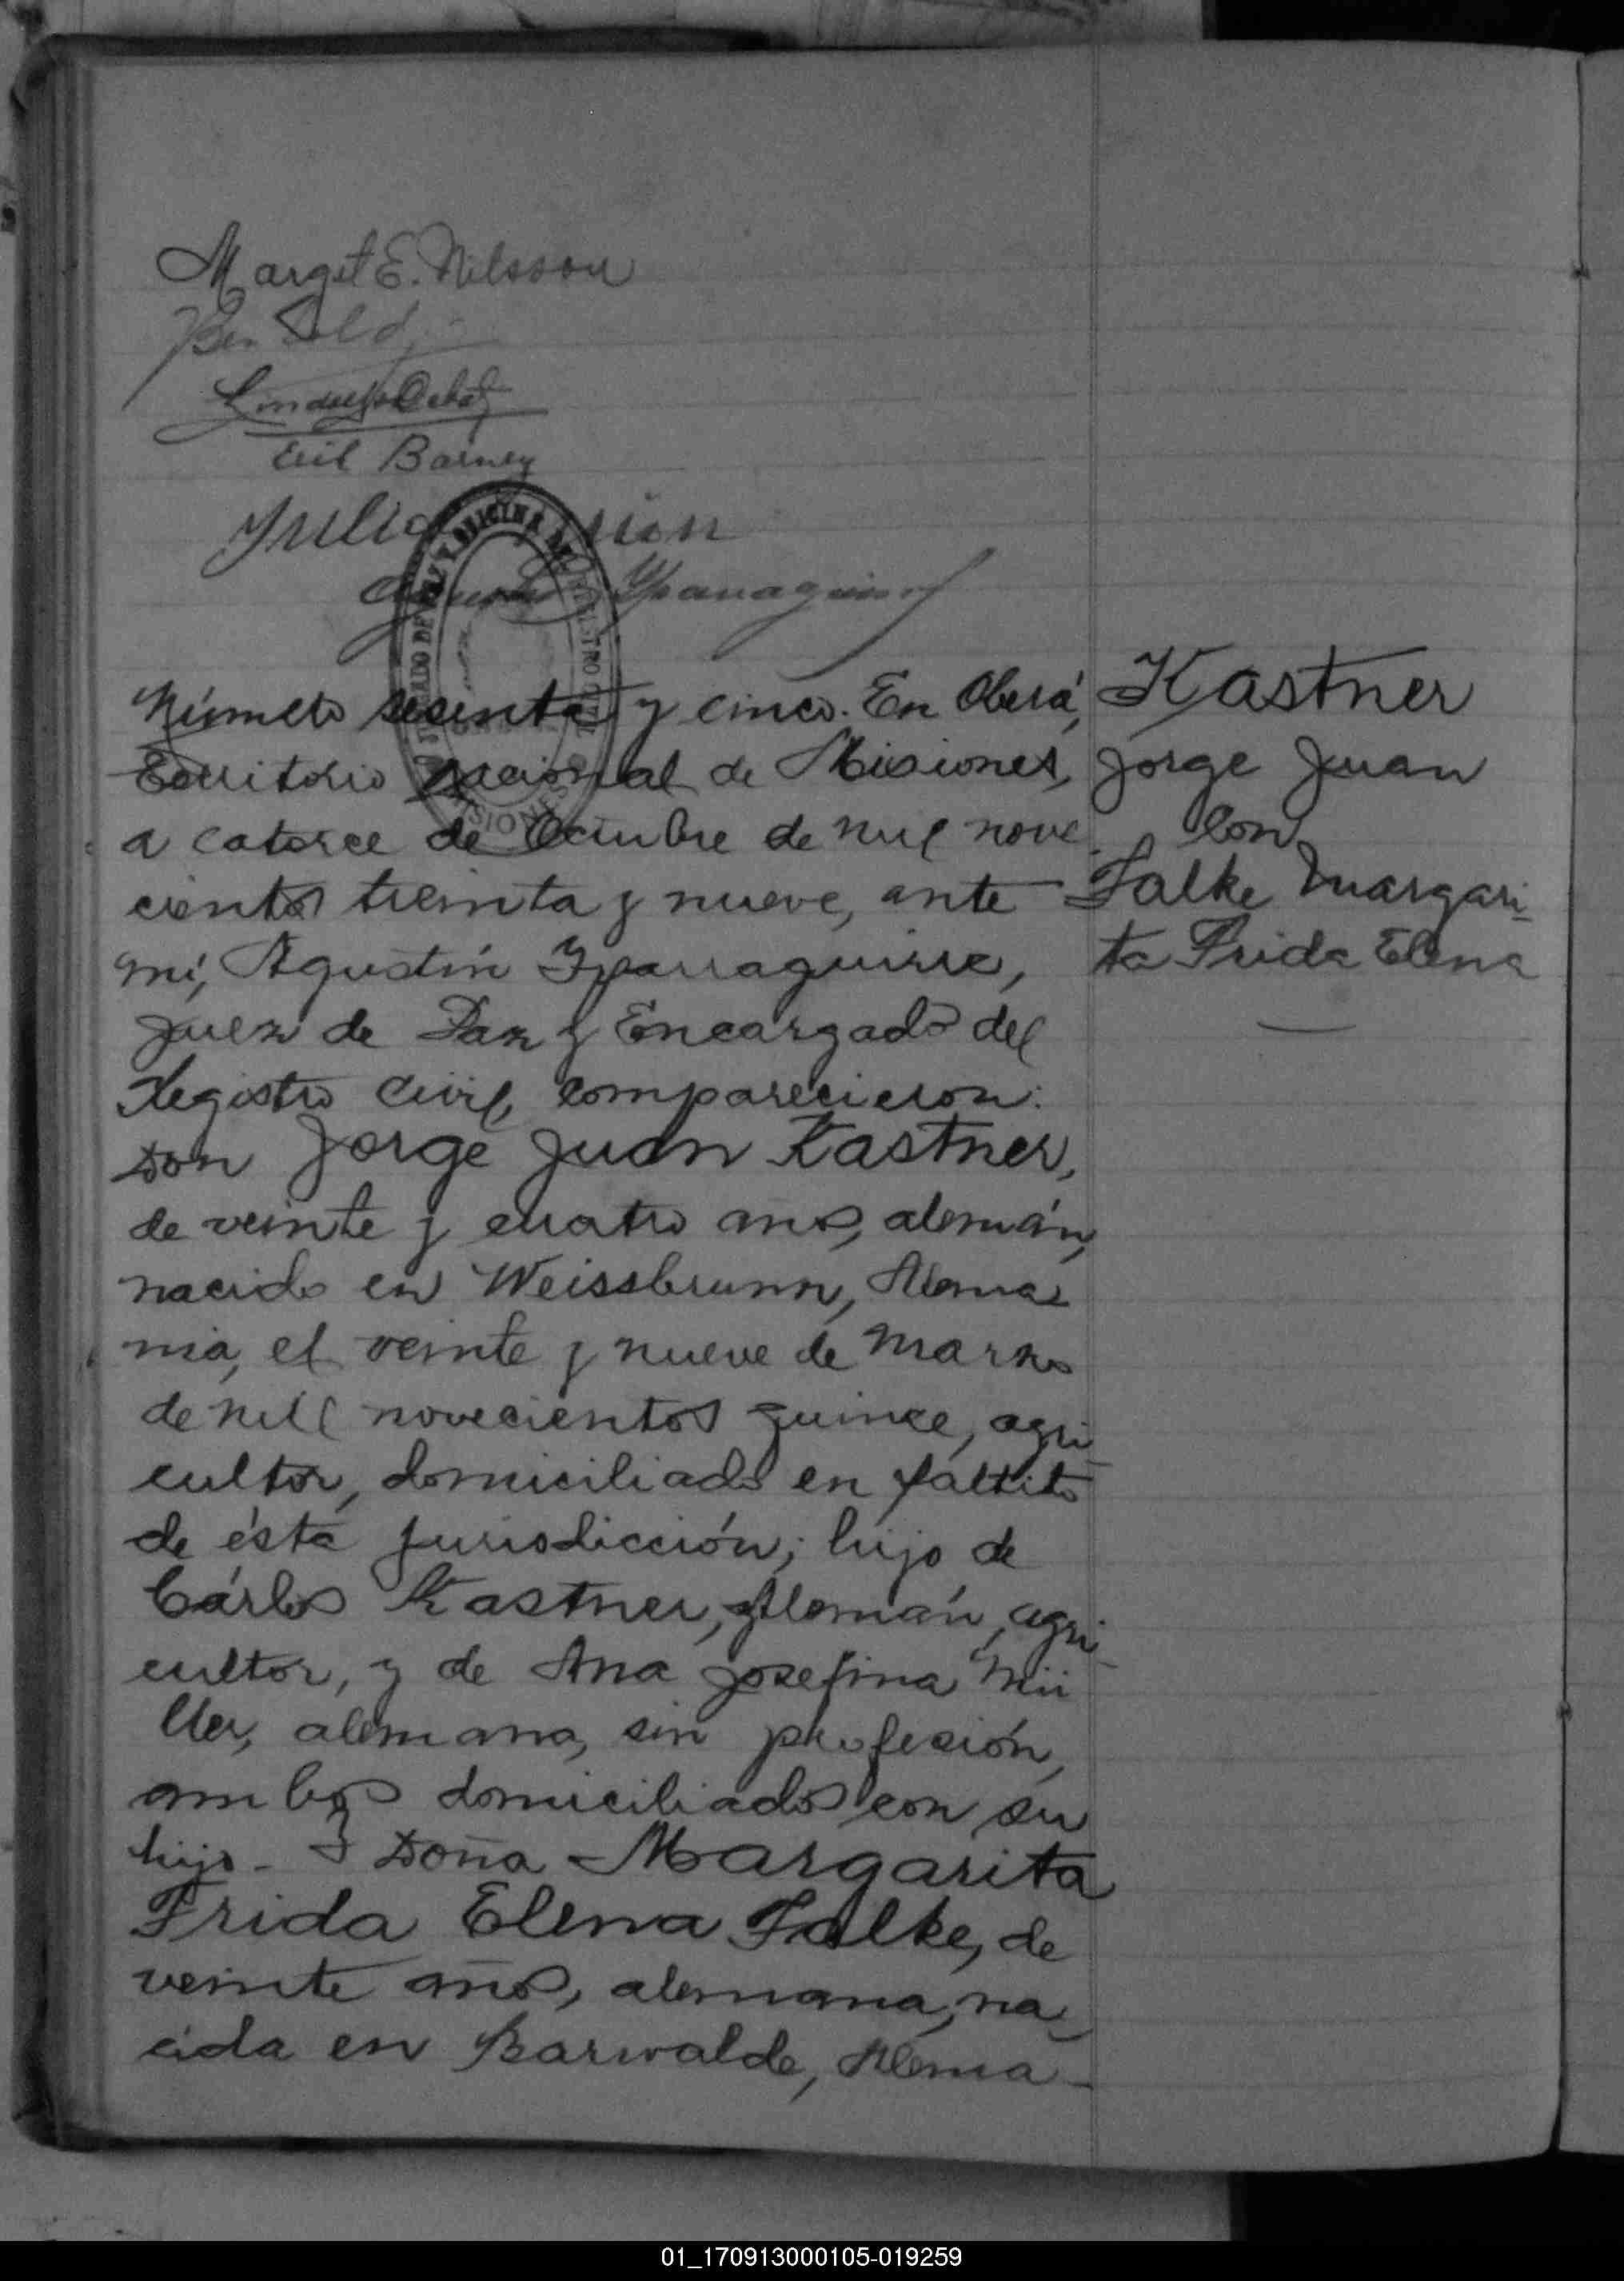 Margit E. Nilsson
Eril Barney
Julio
Número sesenta y cinco. En Oberá,
Territorio Nacional de Misiones,
a catorce de Octubre de mil nove
cientos treinta y nueve, ante
mí, Agustín Yparraguirre,
Juez de Paz y Encargado del
Registro Civil, comparecieron:
Don Jorge Juan Kastner,
de veinte y cuatro años, alemán,
nacido en Weissbrunn, Alema
nia, el veinte y nueve de Marzo
de mil novecientos quince, agri
cultor, domiciliado en
de ésta jurisdicción; hijo de
Cárlos Kastner, Alemán, agri-
cultor, y de Ana Josefina Mü
ller, alemana, sin profesión,
ambos domiciliados con su
hijo - y Doña Margarita
Frida Elena Falke, de
veinte años, alemana, na
cida en Barwalde, Alema-
Kastner
Jorge Juan
con
Falke Margari-
ta Frida Elena
01_170913000105-019259